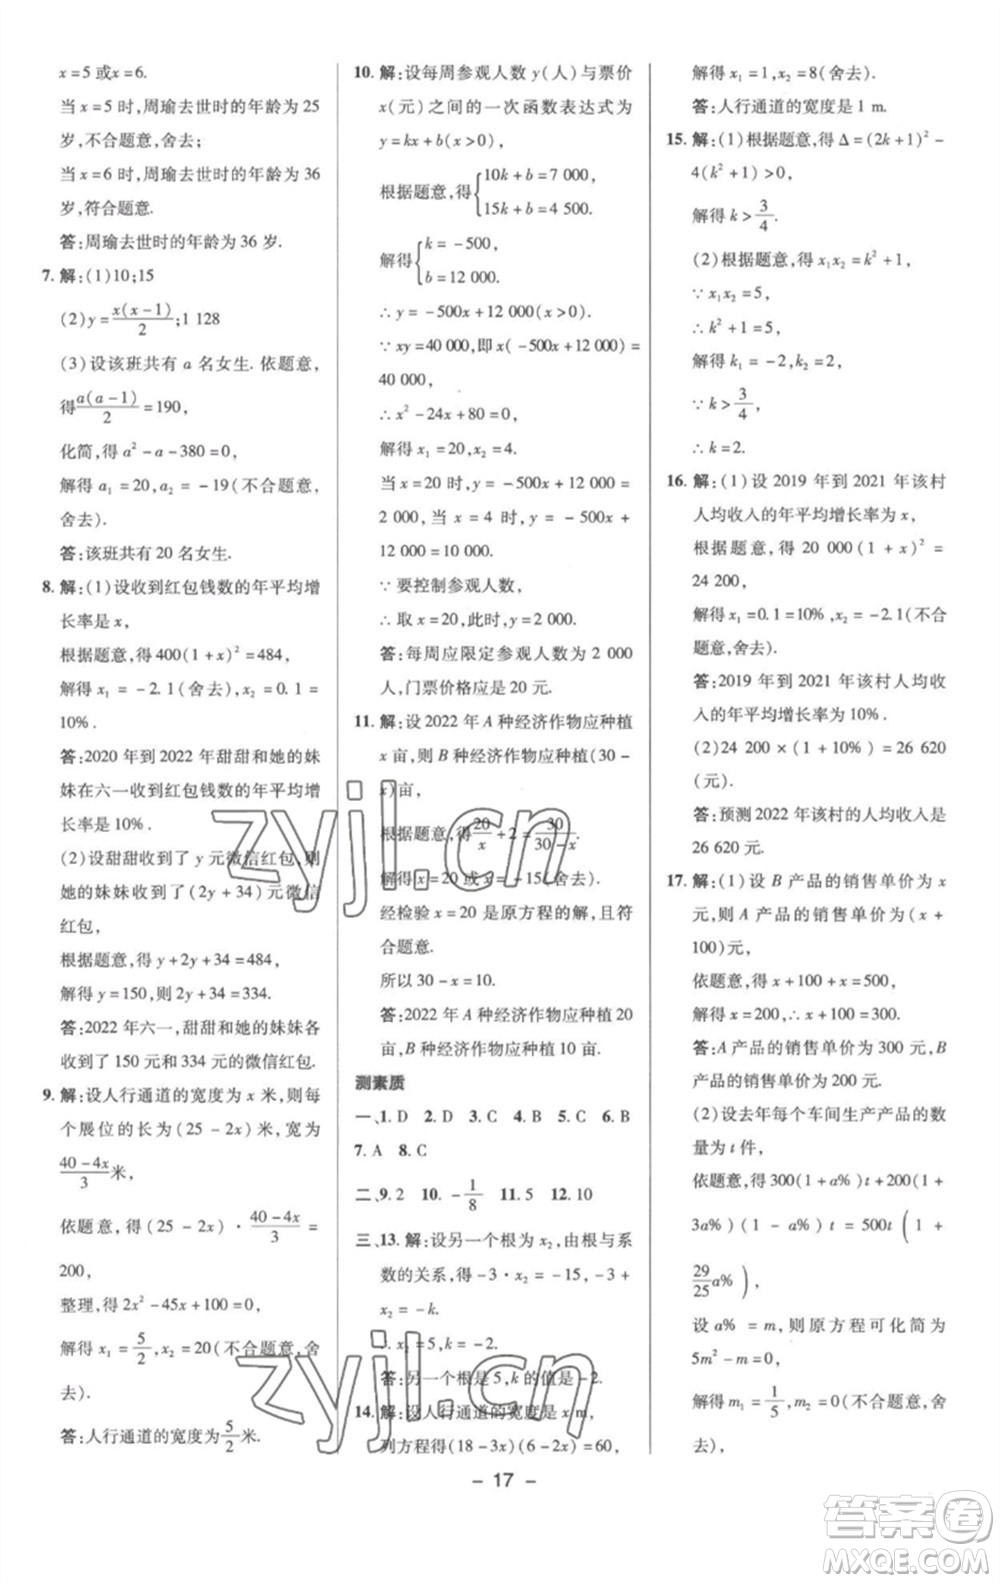 x=5 或x=6.
当 x=5 时,周瑜去世时的年龄为 25
岁,不合题意,舍去;
当 x=6 时,周瑜去世时的年龄为 36
岁,符合题意.
答:周瑜去世时的年龄为 36 岁.
7. 解:(1)10;15
(2)y=x(x-1)/2;1 128
(3)设该班共有 a 名女生. 依题意,
得a(a-1)/2=190,
化简,得 a²-a-380=0,
解得 a₁=20,a₂=-19(不合题意,
舍去).
答:该班共有 20 名女生.
8. 解:(1)设收到红包钱数的年平均增
长率是 x,
根据题意,得 400(1+x)²=484,
解得 x₁=-2.1(舍去),x₂=0.1=
10%.
答:2020 年到 2022 年甜甜和她的妹
妹在六一收到红包钱数的年平均增
长率是 10%.
(2)设甜甜收到了 y 元微信红包,则
她的妹妹收到了(2y+34)元微信
红包,
根据题意,得 y+2y+34=484,
解得 y=150,则 2y+34=334.
答:2022 年六一,甜甜和她的妹妹各
收到了 150 元和 334 元的微信红包.
9. 解:设人行通道的宽度为 x 米,则每
个展位的长为(25-2x)米,宽为
(40-4x)/3米,
依题意,得(25-2x)·(40-4x)/3=
200,
整理,得 2x²-45x+100=0,
解得 x₁=5/2,x₂=20(不合题意,舍
去).
答:人行通道的宽度为5/2米.
10. 解:设每周参观人数 y(人)与票价
x(元)之间的一次函数表达式为
y=kx+b(k≠0).
根据题意,得{10k+b=7 000,
15k+b=4 500.
解得{k=-500,
b=12 000.
∴y=-500x+12 000(x>0).
∵xy=40 000,即 x(-500x+12 000)=
40 000,
∴x²-24x+80=0,
解得 x₁=20,x₂=4.
当 x=20 时,y=-500x+12 000=
2 000,当 x=4 时,y=-500x+
12 000=10 000.
∵要控制参观人数,
∴取 x=20,此时 y=2 000.
答:每周应限定参观人数为 2 000
人,门票价格应是 20 元.
11. 解:设 2022 年 A 种经济作物应种植
x 亩,则 B 种经济作物应种植(30-
x)亩,
根据题意,得20/x+2=30/(30-x).
解得 x=20 或 x=-15(舍去).
经检验 x=20 是原方程的解,且符
合题意.
所以 30-x=10.
答:2022 年 A 种经济作物应种植 20
亩,B 种经济作物应种植 10 亩.
测素质
一、1. D 2. D 3. C 4. C 5. D 6. B
7. A 8. C
二、9. 2 10. -1/8 11. 5 12. 10
三、13. 解:设另一个根为 x₂,由根与系
数的关系,得-3·x₂=-15,-3+
x₂=-k.
∴x₂=5,k=-2.
答:另一个根是 5,k 的值是-2.
14. 解:设人行通道的宽度是 x m,
列方程得(18-3x)(6-2x)=60,
解得 x₁=1,x₂=8(舍去).
答:人行通道的宽度是 1 m.
15. 解:(1)根据题意,得 Δ=(2k+1)²-
4(k²+1)>0,
解得 k>3/4.
(2)根据题意,得 x₁x₂=k²+1,
∵x₁x₂=5,
∴k²+1=5,
解得 k₁=-2,k₂=2,
∵k>3/4,
∴k=2.
16. 解:(1)设 2019 年到 2021 年该村
人均收入的年平均增长率为 x,
根据题意,得 20 000(1+x)²=
24 200,
解得 x₁=0.1=10%,x₂=-2.1(不合
题意,舍去).
答:2019 年到 2021 年该村人均收
入的年平均增长率为 10%.
(2)24 200×(1+10%)=26 620
(元).
答:预测 2022 年该村的人均收入是
26 620 元.
17. 解:(1)设 B 产品的销售单价为 x
元,则 A 产品的销售单价为(x+
100)元,
依题意,得 x+100+x=500,
解得 x=200,∴x+100=300.
答:A 产品的销售单价为 300 元,B
产品的销售单价为 200 元.
(2)设去年每个车间生产产品的数
量为 t 件,
依题意,得 300(1+a%)t+200(1+
3a%)(1-a%)t=500t(1+
29/25a%),
设 a%=m,则原方程可化简为
5m²-m=0,
解得 m₁=1/5,m₂=0(不合题意,舍
去),
- 17 -
zyjl.cn
zyjl.cn
答案圈
MXQE.COM